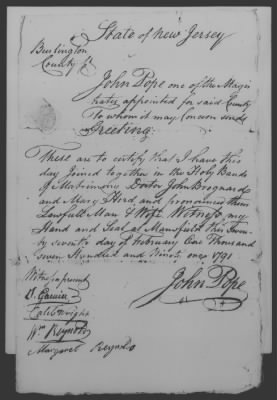 State of New Jersey
Burlington
County Ss
John Pope one of the Magis
trates appointed for said County
To whom it may Concern sends
Greeting
These are to certify that I have this
day Joined together in the Holy Bands
of Matrimony Doctor John Brognard
and Mary Herd, and pronounced them
Lawfull Man & Wife Witness my
Hand and Seal at Mansfield this Twen-
ty seventh day of February One Thousand
seven Hundred and Ninety one 1791
Witness present
John Pope
Caleb Wright
Wm Reynolds
Margaret Reynolds